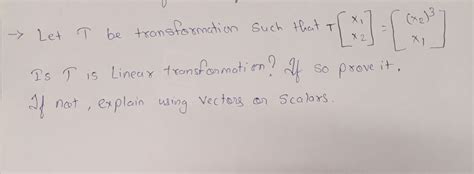 → Let T be transformation such that T[x₁ x₂] = [(x₂)³ x₁]
Is T is Linear transformation? If so prove it.
If not, explain using vectors or Scalars.